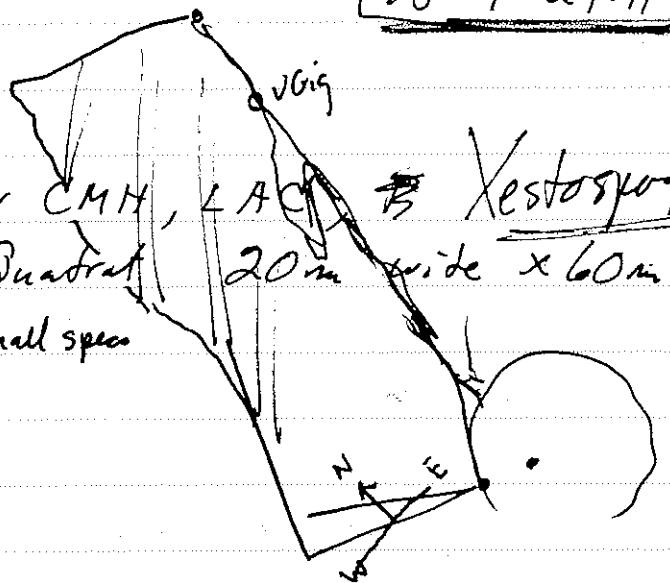 vGig
CMH, LAC Xestospong
Quadrat 20m wide x 60m
small spec
N E